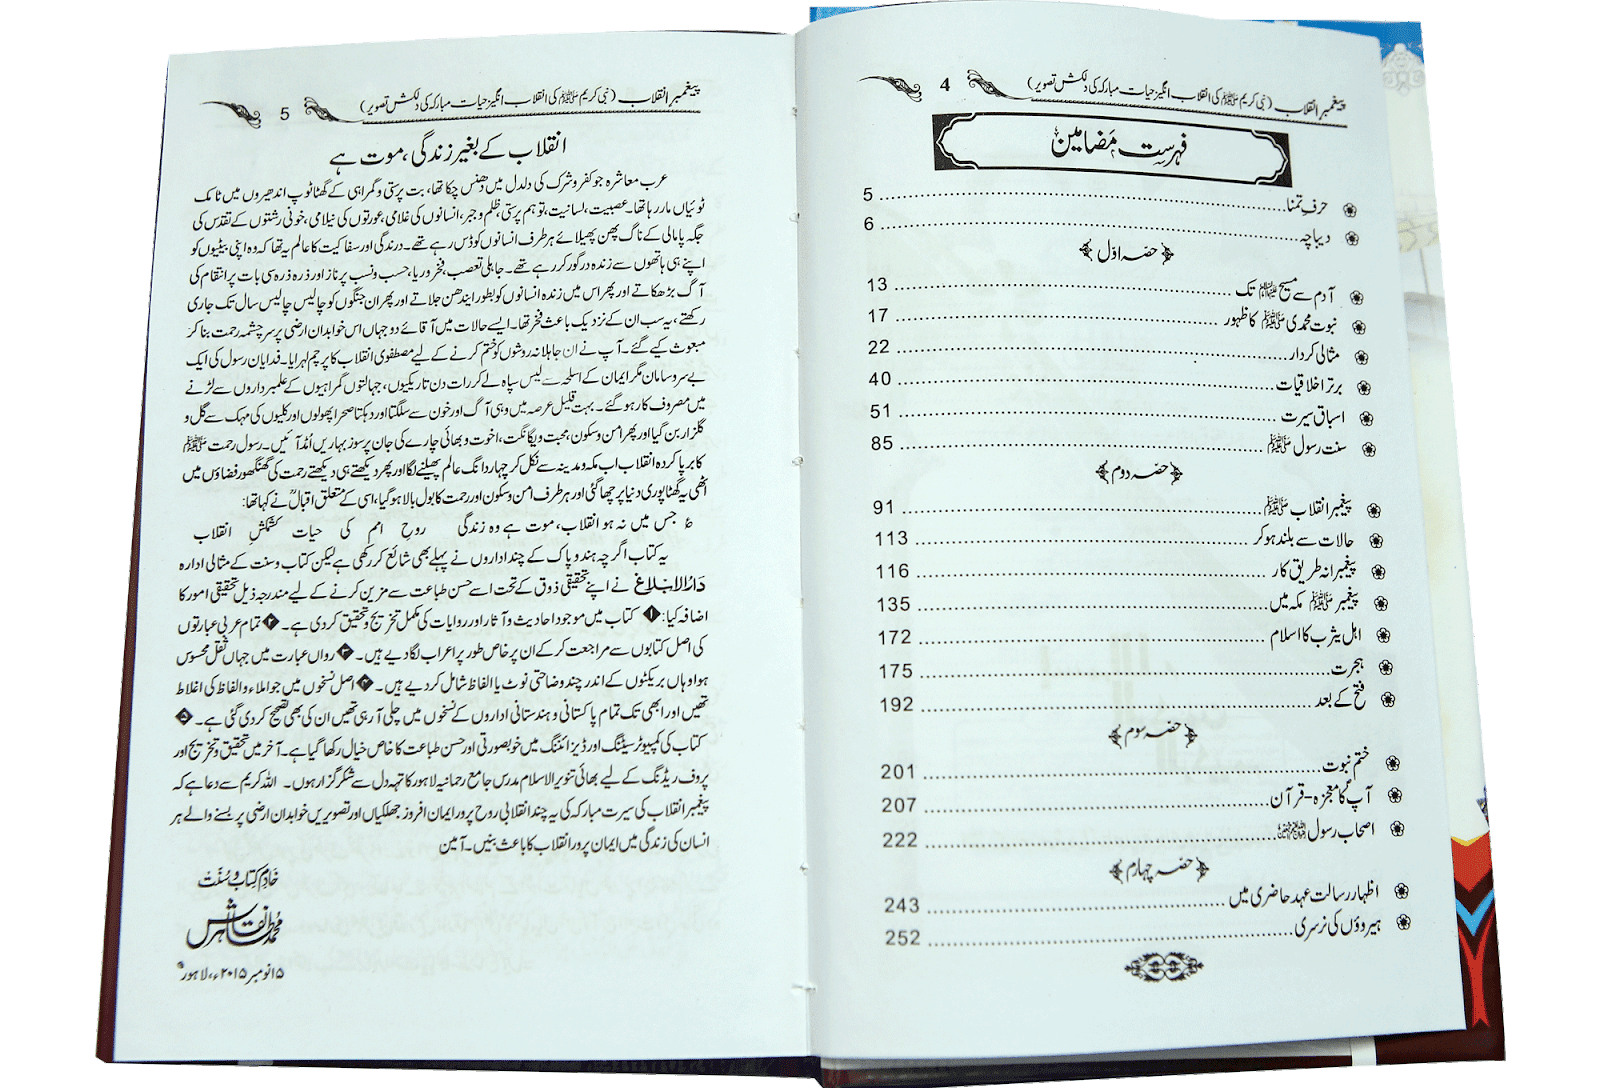 پیغمبرِ انقلاب (نبی کریم ﷺ کی انقلاب انگیز حیات مبارکہ کی دلکش تصویر) 4
فہرست مضامین
حرفِ تمنا 5
دیباچہ 6
حصہ اوّل
آدم سے مسیح علیہما السلام تک 13
نبوت محمدی ﷺ کا ظہور 17
مثالی کردار 22
برتر اخلاقیات 40
اسباق سیرت 51
سنت رسول ﷺ 85
حصہ دوم
پیغمبر انقلاب ﷺ 91
حالات سے بلند ہو کر 113
پیغمبرانہ طریق کار 116
پیغمبر ﷺ مکہ میں 135
اہل یثرب کا اسلام 172
ہجرت 175
فتح کے بعد 192
حصہ سوم
ختم نبوت 201
آپ کا معجزہ - قرآن 207
اصحاب رسول 222
حصہ چہارم
اظہار رسالت عہد حاضر میں 243
ہیروؤں کی نرسری 252
پیغمبرِ انقلاب (نبی کریم ﷺ کی انقلاب انگیز حیات مبارکہ کی دلکش تصویر) 5
انقلاب کے بغیر زندگی، موت ہے
عرب معاشرہ جو کفر و شرک کی دلدل میں دھنس چکا تھا، بت پرستی و گمراہی کے گھٹا ٹوپ اندھیروں میں ٹامک
ٹوئیاں مار رہا تھا۔ عصبیت، لسانیت، توہم پرستی، ظلم و جبر، انسانوں کی غلامی، عورتوں کی نیلامی، خونی رشتوں کے تقدس کی
جگہ پامالی کے ناگ پھن پھیلائے ہر طرف انسانوں کو ڈس رہے تھے۔ درندگی اور سفاکیت کا عالم یہ تھا کہ وہ اپنی بیٹیوں کو
اپنے ہی ہاتھوں سے زندہ درگور کر رہے تھے۔ جاہلی تعصب، فخر و ریا، حسب و نسب پر ناز اور ذرہ ذرہ سی بات پر انتقام کی
آگ بڑھکاتے اور پھر اس میں زندہ انسانوں کو بطور ایندھن جلاتے اور پھر ان جنگوں کو چالیس چالیس سال تک جاری
رکھتے، یہ سب ان کے نزدیک باعث فخر تھا۔ ایسے حالات میں آقائے دو جہاں اس خوابدان ارضی پر سر چشمہ رحمت بنا کر
مبعوث کیے گئے۔ آپ نے ان جاہلانہ روشوں کو ختم کرنے کے لیے مصطفوی انقلاب کا پرچم لہرایا۔ فدایان رسول کی ایک
بے سروسامان مگر ایمان کے اسلحہ سے لیس سپاہ لے کر رات دن تاریکیوں، جہالتوں گمراہیوں کے علمبرداروں سے لڑنے
میں مصروف کار ہو گئے۔ بہت قلیل عرصہ میں وہی آگ اور خون سے سلگتا اور دہکتا صحرا پھولوں اور کلیوں کی مہک سے گل و
گلزار بن گیا اور پھر امن و سکون، محبت و یگانگت، اخوت و بھائی چارے کی جان پر سوز بہاریں اُمڈ آئیں۔ رسول رحمت ﷺ
کا برپا کردہ انقلاب اب مکہ و مدینہ سے نکل کر چہار دانگ عالم پھیلنے لگا اور پھر دیکھتے ہی دیکھتے رحمت کی گھنگھور فضاؤں میں
اٹھی یہ گھٹا پوری دنیا پر چھا گئی اور ہر طرف امن و سکون اور رحمت کا بول بالا ہو گیا، اسی کے متعلق اقبالؒ نے کہا تھا:
؏ جس میں نہ ہو انقلاب، موت ہے وہ زندگی روحِ امم کی حیات کشمکشِ انقلاب
یہ کتاب اگرچہ ہند و پاک کے چند اداروں نے پہلے بھی شائع کر رکھی ہے لیکن کتاب و سنت کے مثالی ادارہ
دارالابلاغ نے اپنے تحقیقی ذوق کے تحت اسے حسن طباعت سے مزین کرنے کے لیے مندرجہ ذیل تحقیقی امور کا
اضافہ کیا: ۱ کتاب میں موجود احادیث و آثار اور روایات کی مکمل تخریج و تحقیق کر دی ہے۔ ۲ تمام عربی عبارتوں
کی اصل کتابوں سے مراجعت کر کے ان پر خاص طور پر اعراب لگا دیے ہیں۔ ۳ رواں عبارت میں جہاں ثقل محسوس
ہوا وہاں بریکٹوں کے اندر چند وضاحتی نوٹ یا الفاظ شامل کر دیے ہیں۔ ۴ اصل نسخوں میں جو املاء و الفاظ کی اغلاط
تھیں اور ابھی تک تمام پاکستانی و ہندستانی اداروں کے نسخوں میں چلی آ رہی تھیں ان کی بھی تصحیح کر دی گئی ہے۔ ۵
کتاب کی کمپیوٹر سیٹنگ اور ڈیزائننگ میں خوبصورتی اور حسن طباعت کا خاص خیال رکھا گیا ہے۔ آخر میں تحقیق و تخریج اور
پروف ریڈنگ کے لیے بھائی تنویر الاسلام مدرس جامع رحمانیہ لاہور کا تہہ دل سے شکر گزار ہوں۔ اللہ کریم سے دعا ہے کہ
پیغمبر انقلاب کی سیرت مبارکہ کی یہ چند انقلابی روح پرور ایمان افروز جھلکیاں اور تصویریں خوابدان ارضی پر بسنے والے ہر
انسان کی زندگی میں ایمان پرور انقلاب کا باعث بنیں۔ آمین
خادِم کتاب و سُنّت
محمد طاہر نقاش
۱۵ نومبر ۲۰۱۵ء، لاہور